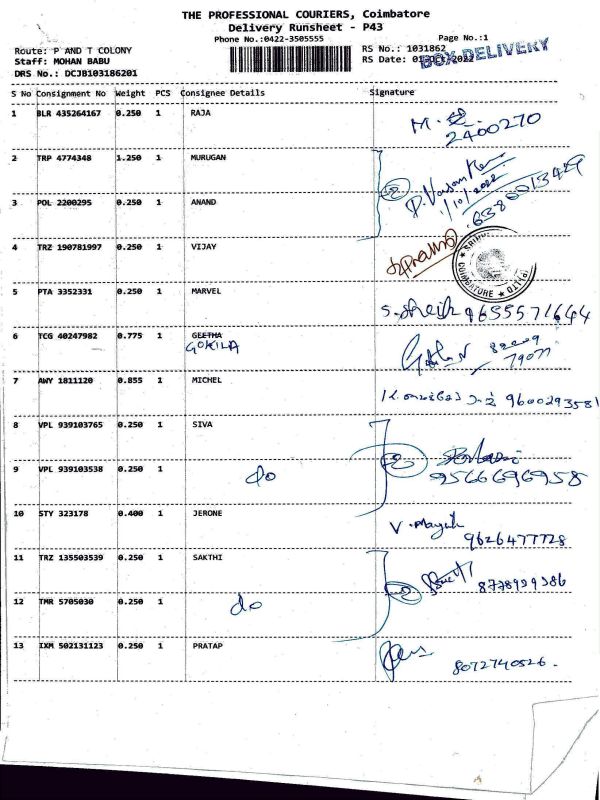 THE PROFESSIONAL COURIERS, Coimbatore
Delivery Runsheet - P43
Phone No.:0422-3505555
Page No.:1
Route: P AND T COLONY
RS No.: 1031862
Staff: MOHAN BABU
RS Date: 01-Oct-2022
BOX DELIVERY
DRS No.: DCJB103186201
S No Consignment No Weight PCS Consignee Details Signature
1 BLR 435264167 0.250 1 RAJA M.
2400270
2 TRP 4774348 1.250 1 MURUGAN
1/10/2022
6380013429
3 POL 2200295 0.250 1 ANAND
4 TRZ 190781997 0.250 1 VIJAY
COIMBATORE
5 PTA 3352331 0.250 1 MARVEL S.Sheik 9655571644
6 TCG 40247982 0.775 1 GEETHA
GOKILA
7 AWY 1811120 0.855 1 MICHEL 9600293581
8 VPL 939103765 0.250 1 SIVA
9 VPL 939103538 0.250 1 do 9566696958
10 STY 323178 0.400 1 JERONE V.
9626477728
11 TRZ 135503539 0.250 1 SAKTHI
12 TMR 5705030 0.250 1 do
13 IXM 502131123 0.250 1 PRATAP
8072740526.